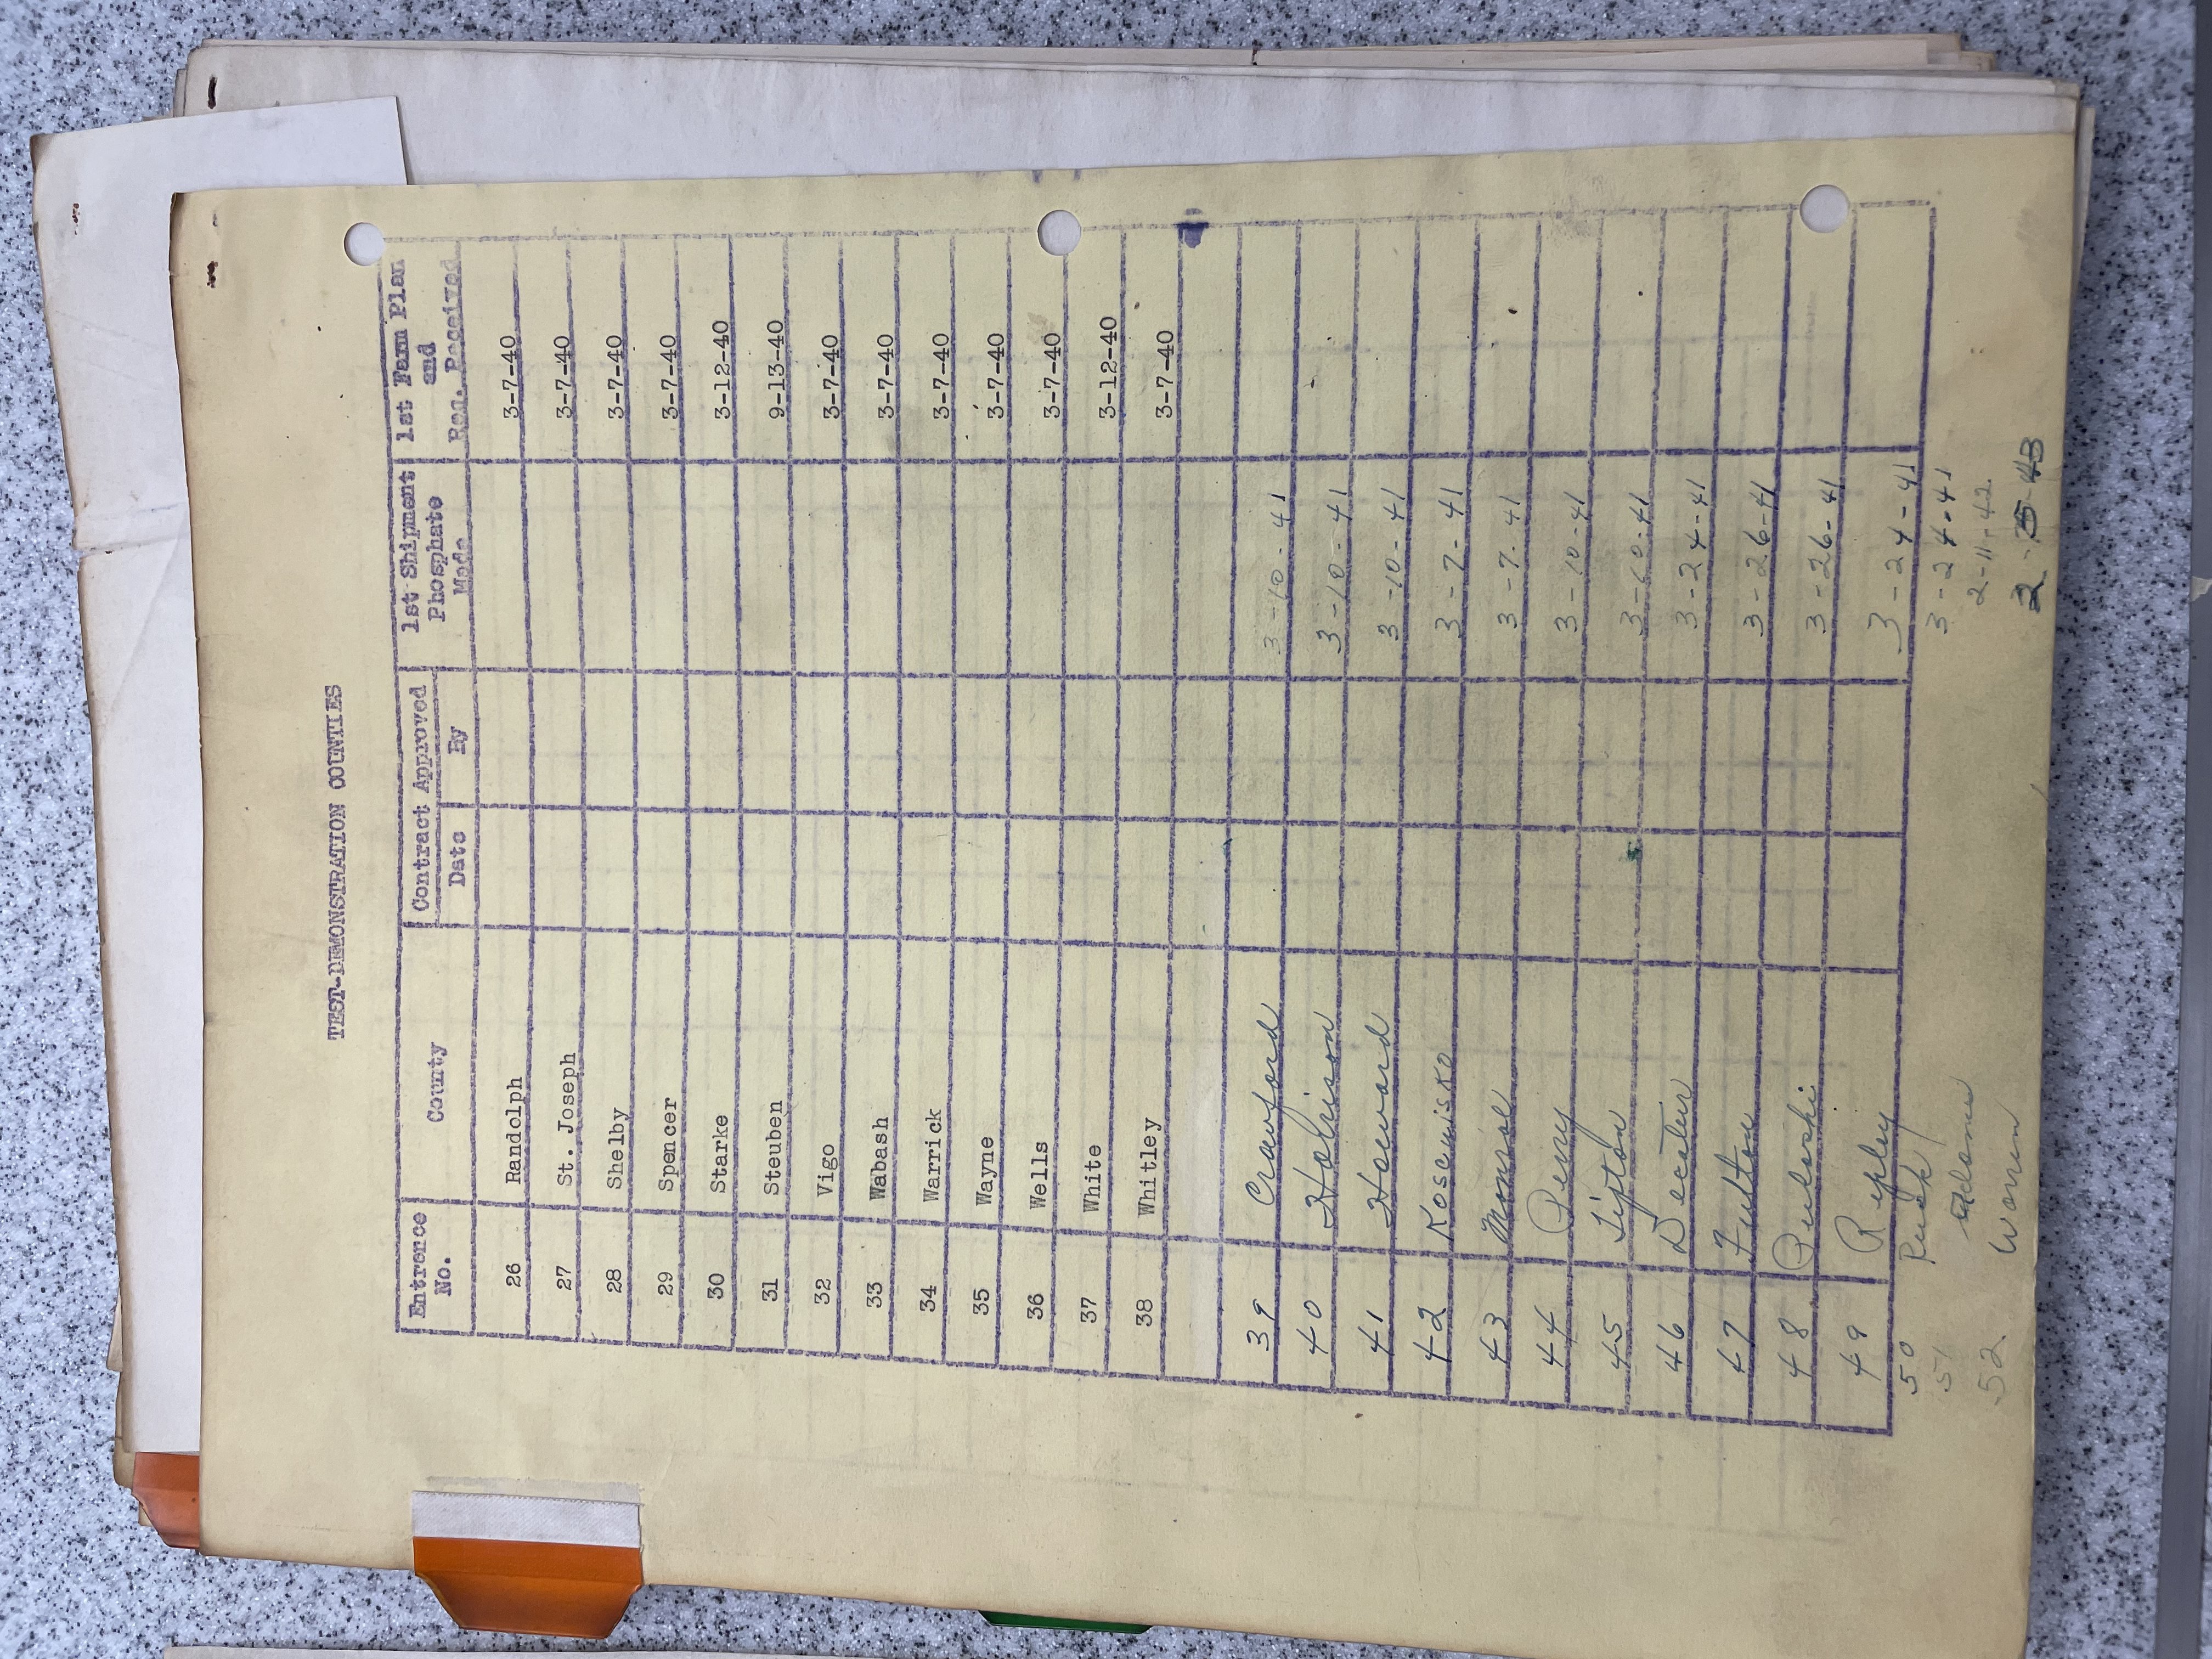 TEST-DEMONSTRATION COUNTIES
Entrance No. County Contract Approved Date By 1st Shipment Phosphate Made 1st Farm Plan and Req. Received
26 Randolph 3-7-40
27 St. Joseph 3-7-40
28 Shelby 3-7-40
29 Spencer 3-7-40
30 Starke 3-12-40
31 Steuben 9-13-40
32 Vigo 3-7-40
33 Wabash 3-7-40
34 Warrick 3-7-40
35 Wayne 3-7-40
36 Wells 3-7-40
37 White 3-12-40
38 Whitley 3-7-40
39 Crawford 3-10-41
40 Harrison 3-10-41
41 Howard 3-10-41
42 Koscuisko 3-7-41
43 Monroe 3-7-41
44 Perry 3-10-41
45 Tipton 3-10-41
46 Decatur 3-24-41
47 Fulton 3-26-41
48 Pulaski 3-26-41
49 Repley 3-24-41
50 Rush 3-24-41
51 Adams 2-11-42
52 Warren 2-5-43